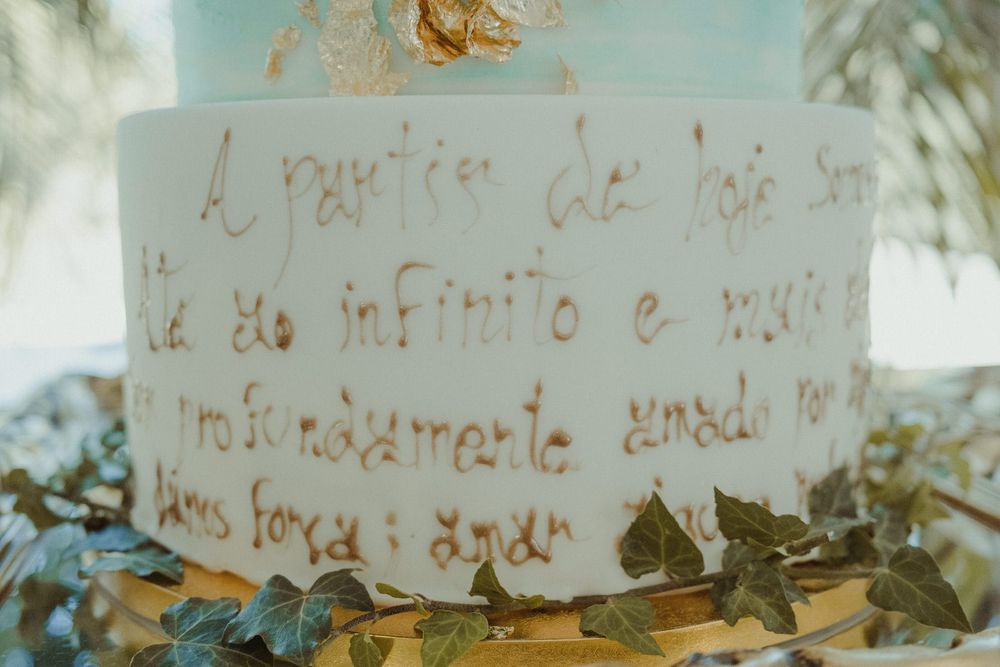 A partir de hoje
Até ao infinito e mais
profundamente amado por
dá-nos força; amar